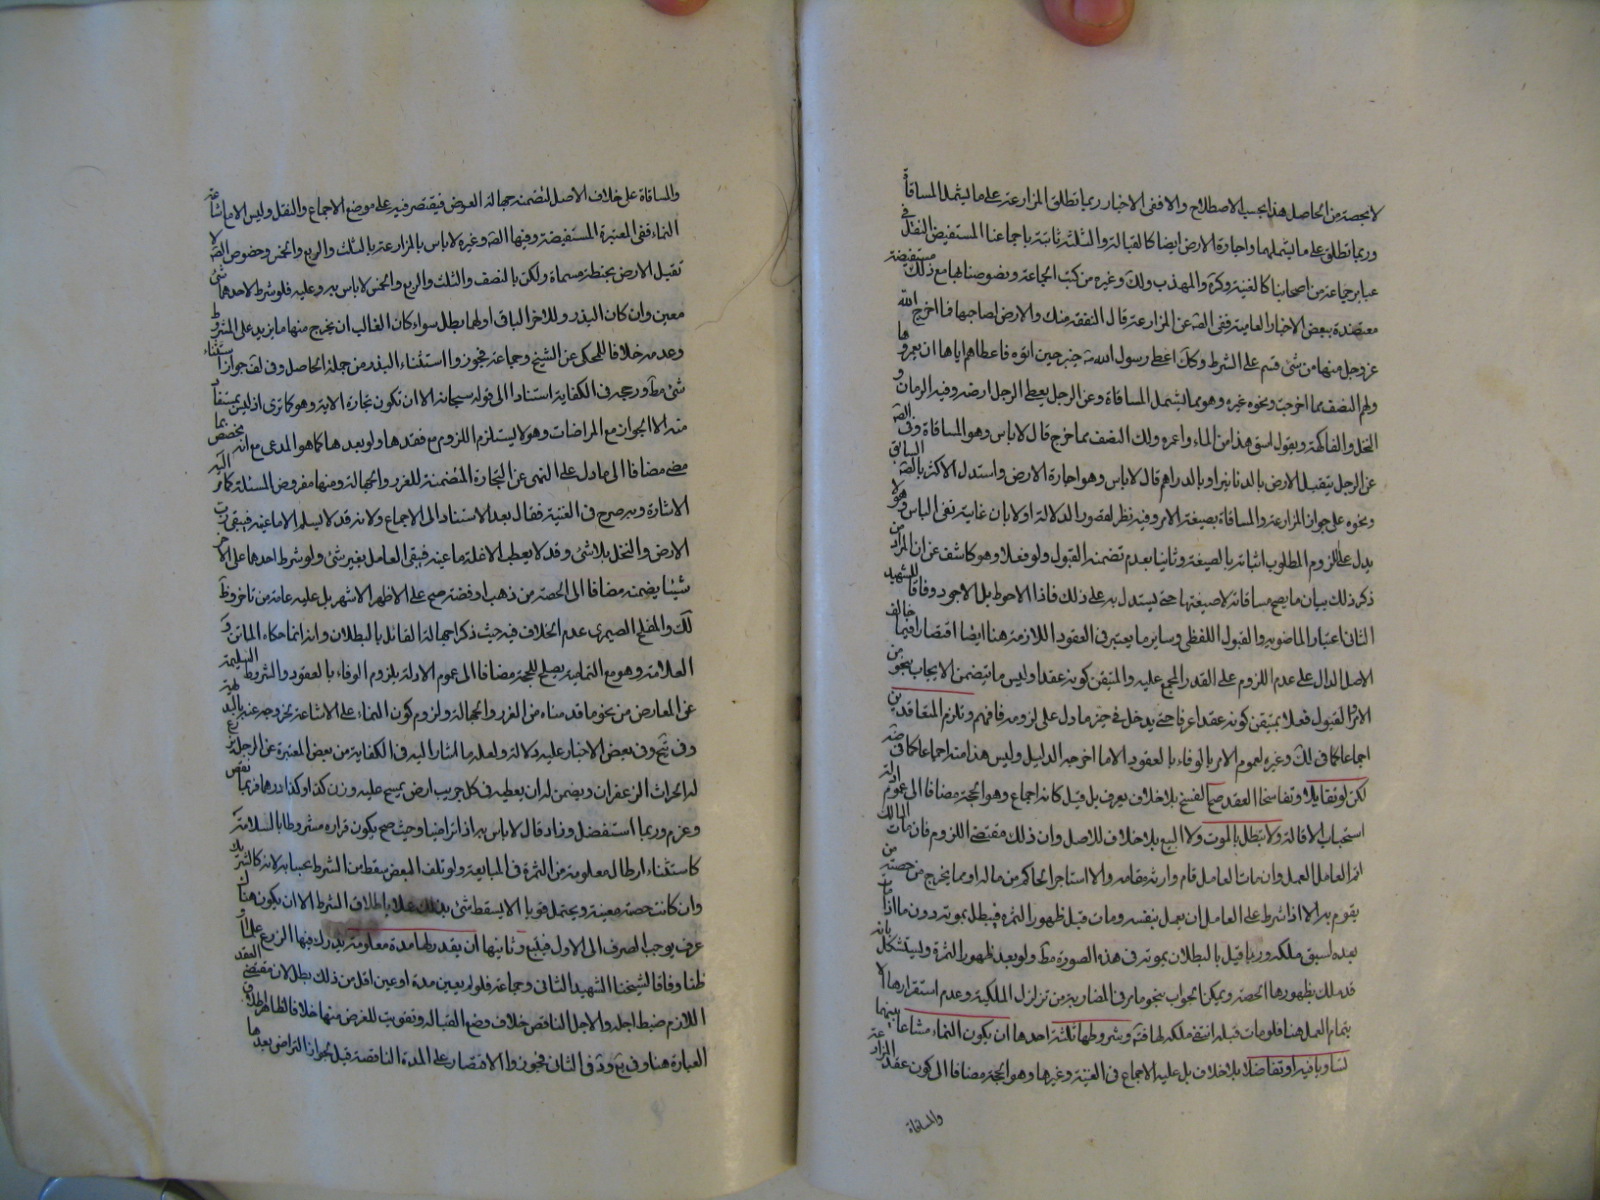 لا بحصة من الحاصل هذا بحسب الاصطلاح والا ففى الاخبار ربما تطلق المزارعة على ما يشمل المساقاة
وربما تطلق على ما يشملهما واجارة الارض ايضا كالقبالة والثلثة ثابتة باجماعنا المستفيض النقل فى
عباير جماعة من اصحابنا كالغنية وكرة والمهذب ولك وغيره من كتب الجماعة ونصوصنا بها مع ذلك مستفيضة
معتضدة ببعض الاخبار العامية ففى الصه عن المزارعة قال النفقة منك والارض لصاحبها فما اخرج الله
عز وجل منها من شئ قسم على الشرط وكك اعطى رسول الله خيبر حين اتوه فاعطاهم اياها ان يعمروها
ولهم النصف مما اخرجت ونحوه غيره وهو مما يشمل المساقاة وعن الرجل يعطى الرجل ارضه وفيه الرمان و
النخل والفاكهة ويقول اسق هذا من الماء واعمره ولك النصف مما خرج قال لا باس وهو المساقاة وفى الصه
عن الرجل يتقبل الارض بالدنانير او بالدراهم قال لا باس وهو اجارة الارض واستدل الاكثر بالصه السابق
ونحوه على جواز المزارعة والمساقاة بصيغة الامر وفيه نظر لقصور الدلالة اولا بان غايته نفى الباس وهو لا
يدل على لزوم المطلوب اثباته بالصيغة وثانيا بعدم تضمنه القبول ولو فعلا وهو كاشف عن ان المراد من
ذكر ذلك بيان ما يصح مساقاته لا صيغتها حتى يستدل به على ذلك فاذا الاحوط بل الاجود وفاقا للشهيد
الثانى اعتبار الماضوية والقبول اللفظى وساير ما يعتبر فى العقود اللازمة هنا ايضا اقتصارا فيما خالف
الاصل الدال على عدم اللزوم على القدر المجمع عليه والمتيقن كونه عقدا وليس ما يتضمن الايجاب بنحو من
الامر والقبول فعلا بمتيقن كونه عقدا عرفا حتى يدخل فى حيز ما دل على لزومه فافهم وتلزم المتعاقدين
اجماعا كما فى لك وغيره لعموم الامر بالوفاء بالعقود الا ما اخرجه الدليل وليس هذا منه اجماعا كما فى ضه
لكن لو تقايلا وتفاسخا العقد صح الفسخ بلا خلاف يعرف بل قيل كانه اجماع وهو الحجة مضافا الى عموم ادلة
استحباب الاقالة ولا تبطل بالموت ولا البيع بلا خلاف للاصل وان ذلك مقتضى اللزوم فان مات المالك
اتم العامل العمل وان مات العامل قام وارثه مقامه والا استاجر الحاكم من ماله او مما يخرج من حصته من
يقوم به الا اذا شرط على العامل ان يعمل بنفسه ومات قبل ظهور الثمرة فيبطل بموته دون ما اذا مات
بعده لسبق ملكه وربما قيل بالبطلان بموته فى هذه الصورة مط ولو بعد ظهور الثمرة ويستشكل بانه
قد ملك بظهورها الحصة ويمكن الجواب بنحو ما مر فى المضاربة من تزلزل الملكية وعدم استقرارها الا
بتمام العمل هنا فلو مات قبله انتفى ملكه لها فتم وشروطها ثلثة احدها ان يكون النماء مشاعا بينهما
تساويا فيه او تفاضلا بلا خلاف بل عليه الاجماع فى الغنية وغيرها وهو الحجة مضافا الى كون عقد المزارعة
والمساقاة
والمساقاة على خلاف الاصل لتضمنه جهالة العوض فيقتصر فيه على موضع الاجماع والنقل وليس الا مع اشاعة
النماء ففى المعتبرة المستفيضة وفيها الصه وغيره لا باس بالمزارعة بالثلث والربع والخمس وخصوص الصه لا
تقبل الارض بحنطة مسماة ولكن بالنصف والثلث والربع والخمس لا باس به وعليه فلو شرط لاحدهما شئ
معين وان كان البذر وللاخر الباقى او لهما بطل سواء كان الغالب ان يخرج منها ما يزيد على المشروط
وعدمه خلافا للمحكى عن الشيخ وجماعة فجوزوا استثناء البذر من جملة الحاصل وفى لف جواز استثناء
شئ مط ورجحه فى الكفاية استنادا الى قوله سبحانه الا ان تكون تجارة الاية وهو كما ترى اذ ليس يستفاد
منه الا الجواز مع المراضات وهو لا يستلزم اللزوم مع فقدها ولو بعدها كما هو المدعى مع انه مخصص بما
مضى مضافا الى ما دل على النهى عن التجارة المتضمنة للغرر والجهالة ومنها مفروض المسئلة كما مر اليه
الاشارة وبه صرح فى الغنية فقال بعد الاستناد الى الاجماع ولانه قد لا يسلم الا ما عينه فيبقى رب
الارض والنخل بلا شئ وقد لا يعطب الا غلة ما عينه فيبقى العامل بغير شئ ولو شرط احدهما على الاخر
شيئا يضمنه مضافا الى الحصة من ذهب او فضة صح على الاظهر الاشهر بل عليه عامة من تاخر وظ
لك والمفلح الصيمرى عدم الخلاف فيه حيث ذكرا جهالة القائل بالبطلان وانه انما حكاه الماتن و
العلامة وهو مع التمامية يصلح للحجة مضافا الى عموم الادلة بلزوم الوفاء بالعقود والشروط السليمة
عن المعارض من نحو ما قدمناه من الغرر والجهالة ولزوم كون النماء على الاشاعة لخروجه عنه بالبديهة
وفى يح وفى بعض الاخبار عليه دلالة ولعله ما اشار اليه فى الكفاية من بعض المعتبرة عن الرجل يزرع
له الحراث الزعفران ويضمن له ان يعطيه فى كل جريب ارض يمسح عليه وزن كذا وكذا درهما فربما نقص
وغرم وربما استفضل وزاد قال لا باس به اذا تراضيا وحيث صح يكون قراره مشروطا بالسلامة
كاستثناء ارطال معلومة من الثمرة فى المبايعة ولو تلف البعض سقط من الشرط بحسابه لانه كالشريك
وان كانت حصة معينة ويحتمل قويا ان لا يسقط شئ بذلك عملا باطلاق الشرط الا ان يكون هناك
عرف يوجب الصرف الى الاول فيتبع وثانيها ان يقدر لها مدة معلومة يدرك فيها الزرع علما او
ظنا وفاقا لشيخنا الشهيد الثانى وجماعة فلو لم يعين مدة او عين اقل من ذلك بطل لان مقتضى العقد
اللازم ضبط اجله والاجل الناقص خلاف وضع القبالة وتفويت للغرض منها خلافا لظاهر اطلاق
العبارة هنا وفى يع ود فى الثانى فجوزوا الاقتصار على المدة الناقصة قيل لجواز التراضى بعدها